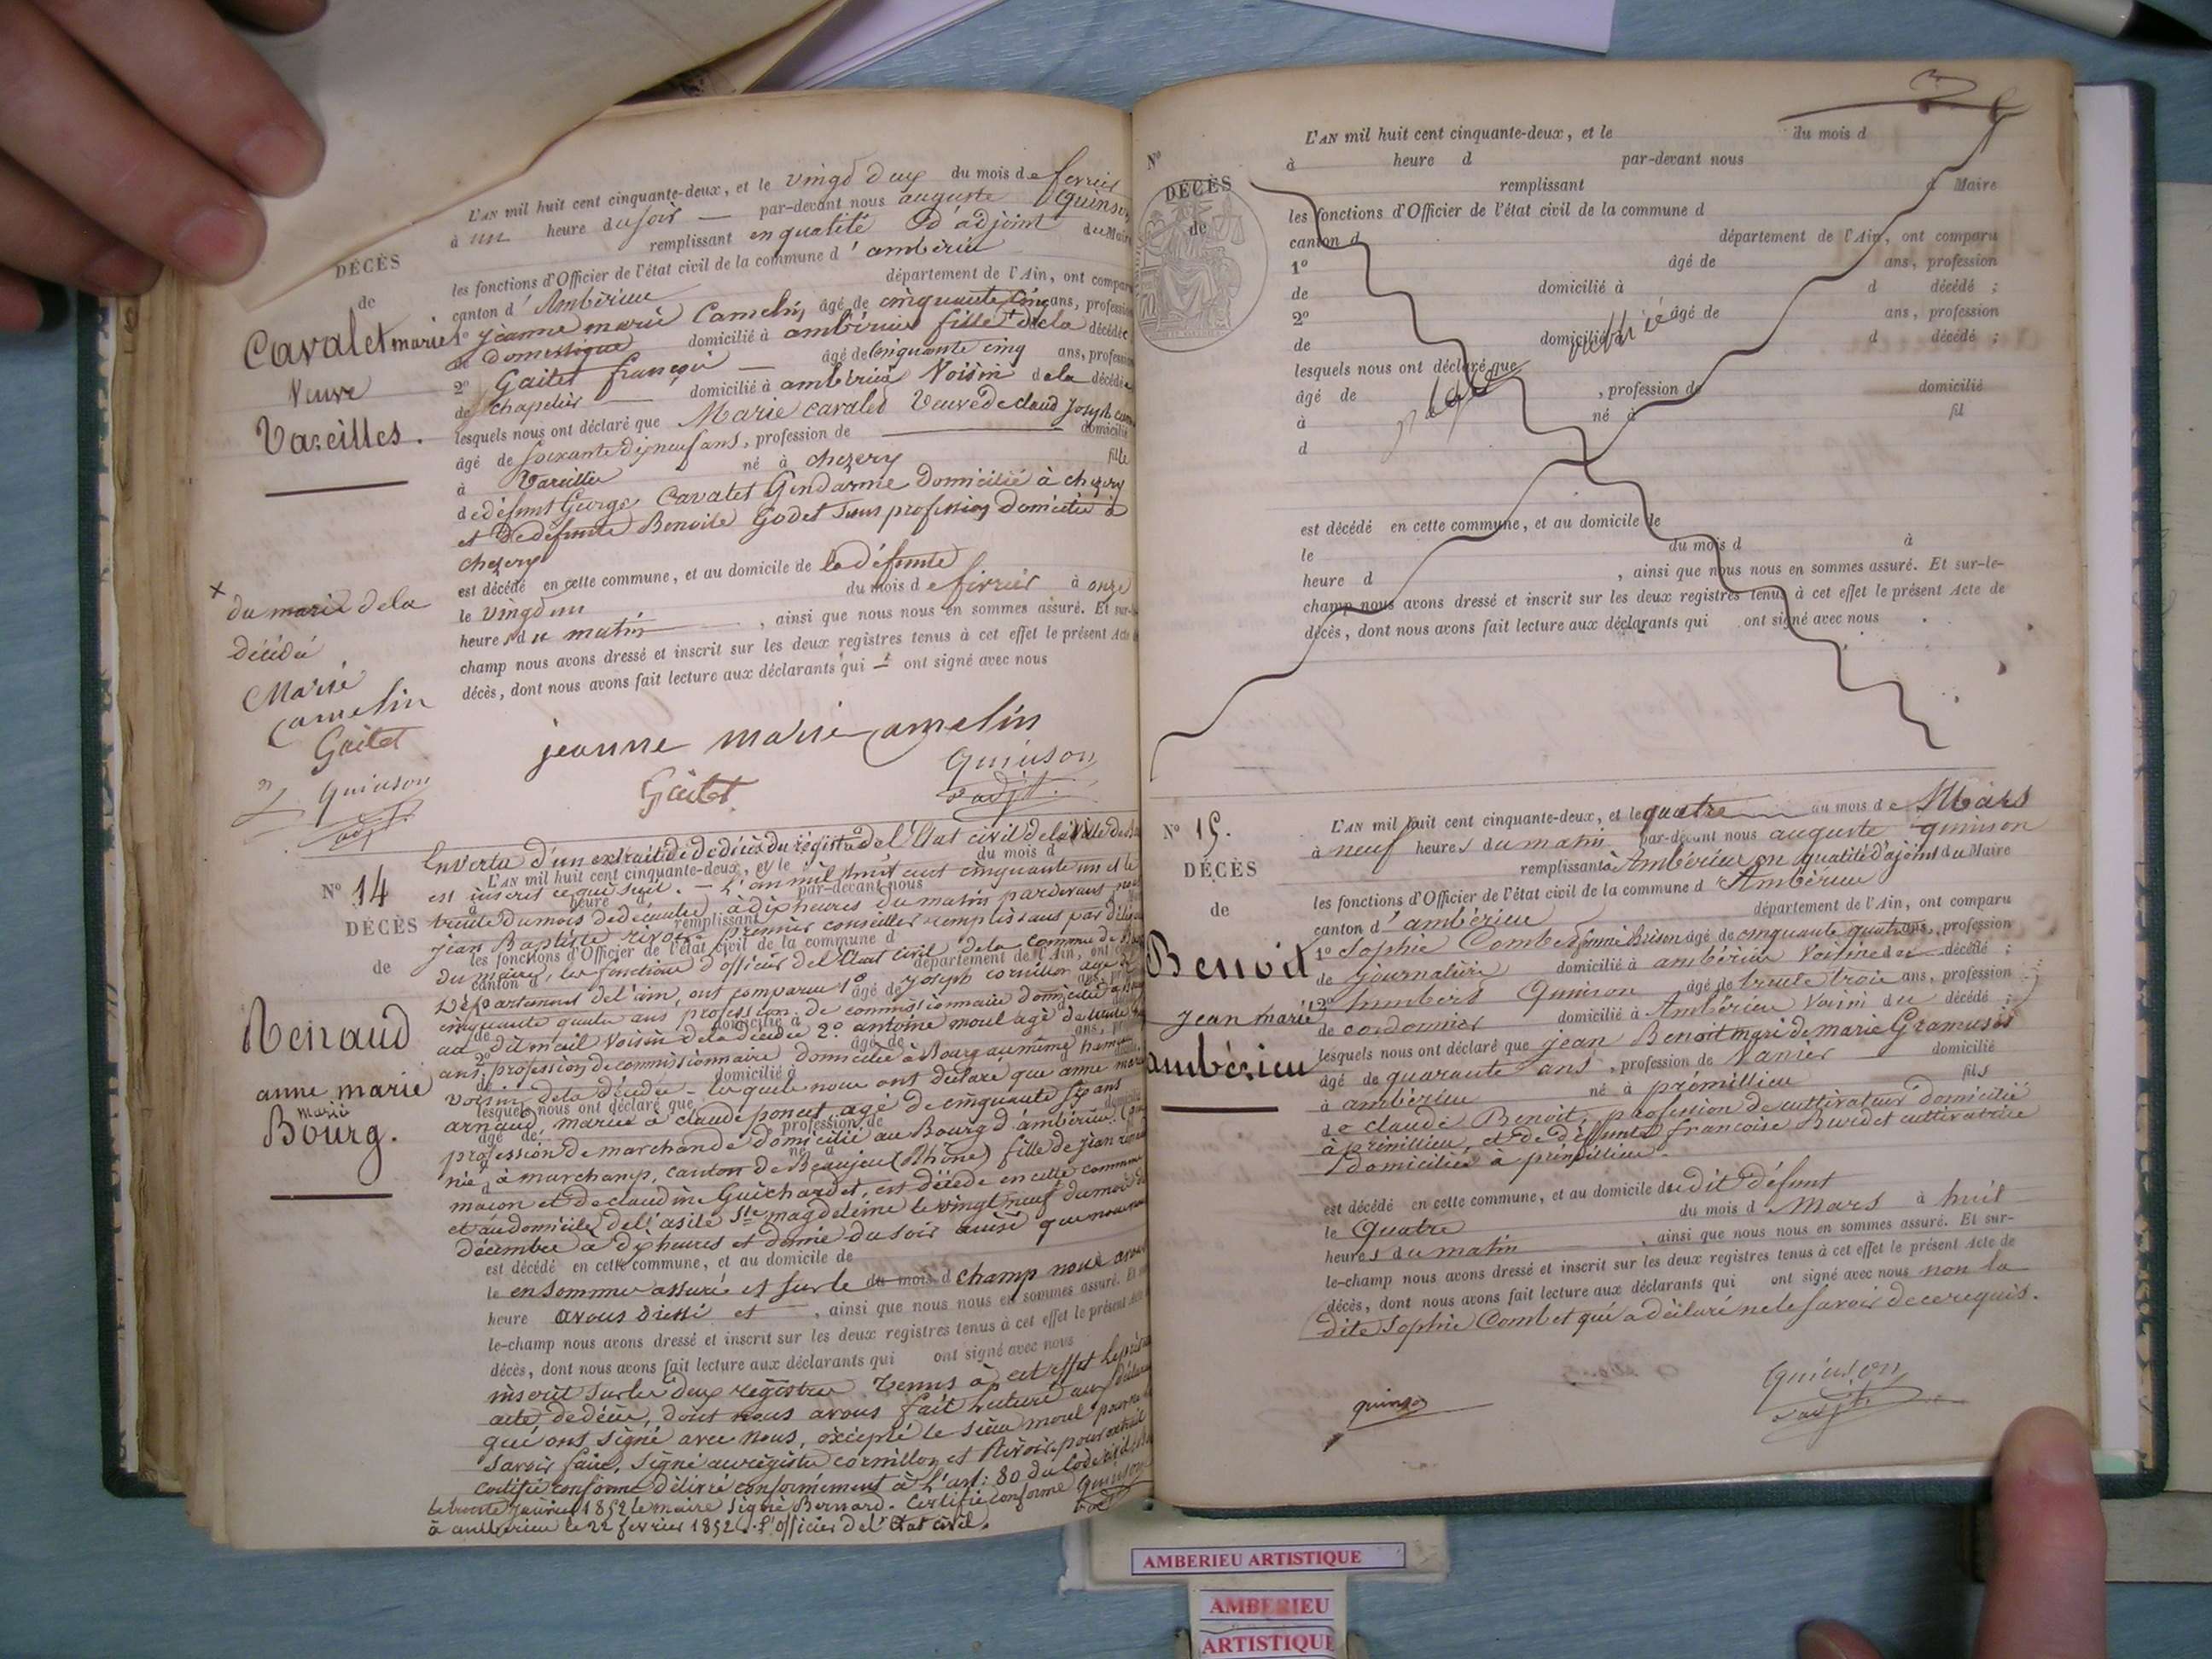 L'AN mil huit cent cinquante-deux, et le vingd deux du mois de fevrier
à un heure du soir — par-devant nous auguste Quinson
remplissant en qualité d'adjoint du Maire
les fonctions d'Officier de l'état civil de la commune d'ambérieu
canton d'Ambérieu département de l'Ain, ont comparu
1º jeanne marie Camelin, âgé de cinquante cinq ans, profession
de Domestique domicilié à ambérieu fille + de la décédée
2º Gaitet françois — âgé de cinquante cinq ans, profession
de chapelier — domicilié à ambérieu Voisin de la décédée
lesquels nous ont déclaré que Marie Cavalet Veuve de Claud Joseph
âgé de soixante dix neuf ans, profession de — domicilié
à Vareilles né à chezery fille
de défunt George Cavalet Gendarme Domicilié à chezery
et de défunte Benoite Godet sans profession domiciliée à
chezery
est décédé en cette commune, et au domicile de la défunte
le vingd un du mois de fevrier à onze
heures du matin — , ainsi que nous nous en sommes assuré. Et sur-le-
champ nous avons dressé et inscrit sur les deux registres tenus à cet effet le présent Acte de
décès, dont nous avons fait lecture aux déclarants qui — ont signé avec nous
jeanne marie camelin
Gaitet
Quinson
adjt.
DÉCÈS
de
Cavalet marie
Veuve
Vareilles.
+
du marie de la
décédé
Marie
Camelin
Gaitet
Quinson
adjt
Nº 14
DÉCÈS
de
Renaud
anne marie
marié
Bourg.
En vertu d'un extrait de de décès du régistre de l'Etat civil de la Ville de
L'AN mil huit cent cinquante-deux, et le du mois d
est inscrit ce qui suit. — L'an mil huit cent cinquante un et le
à heure d par-devant nous
trente du mois de décembre à dix heures du matin pardevant nous
remplissant
jean Baptiste rivoir premier conseiller remplissant par
les fonctions d'Officier de l'état civil de la commune d
du maire, les fonctions d'officier de l'Etat civil de la commune de
canton d département de l'Ain, ont
Département de l'ain, ont comparu 1º joseph cornillon agé de
âgé de
cinquante quatre ans profession de commissionnaire domicilié à
domicilié à
au dit mail Voisin de la décédée 2º antoine moul agé de trente
âgé de ans,
ans, profession de commissionnaire domicilié à Bourg au même hameau
domicilié à
voisin de la décédée — lesquels nous ont déclaré que anne marie
lesquels nous ont déclaré que
arnaud, mariée à claude poncet agé de cinquante six ans
âgé de profession de
profession de marchande domicilié au Bourg d'ambérieu
né à
née à marchamp, canton de Beaujeu (Rhône) fille de jean
maçon et de claudine Guichardet, est décédé en cette commune
et au domicile de l'asile Ste magdeleine le vingt neuf du mois de
décembre à dix heures et demie du soir ainsi que nous nous
est décédé en cette commune, et au domicile de
le en sommes assuré et sur le du mois d champ nous avons
heure avons dressé et — , ainsi que nous nous en sommes assuré. Et
le-champ nous avons dressé et inscrit sur les deux registres tenus à cet effet le présent Acte de
décès, dont nous avons fait lecture aux déclarants qui ont signé avec nous
inscrit sur les deux régistres tenus à cet effet le présent
acte de décès, dont nous avons fait lecture aux
qui ont signé avec nous, excepté le sieur moul pour ne
savoir faire, signé au régistre cornillon et Rivoir. pour extrait
certifié conforme délivré conformément à l'art: 80 du Code civil
le trente janvier 1852 le maire signé Bernard. Certifié conforme Quinson
à ambérieu le 22 fevrier 1852. l'officier de l'Etat civil. adjt
Nº
DÉCÈS
de
L'AN mil huit cent cinquante-deux, et le du mois d
à heure d par-devant nous
remplissant d Maire
les fonctions d'Officier de l'état civil de la commune d
canton d département de l'Ain, ont comparu
1º âgé de ans, profession
de domicilié à d décédé ;
2º âgé de ans, profession
de domicilié à d décédé ;
lesquels nous ont déclaré que
âgé de , profession de domicilié
à né à fil
d
est décédé en cette commune, et au domicile de
le du mois d à
heure d , ainsi que nous nous en sommes assuré. Et sur-le-
champ nous avons dressé et inscrit sur les deux registres tenus à cet effet le présent Acte de
décès, dont nous avons fait lecture aux déclarants qui ont signé avec nous
Nº 15.
DÉCÈS
de
Benoit
jean marié
ambérieu
L'AN mil huit cent cinquante-deux, et le quatre du mois de Mars
à neuf heures du matin par-devant nous auguste quinson
remplissant à Ambérieu en qualité d'ajoint du Maire
les fonctions d'Officier de l'état civil de la commune d'Ambérieu
canton d'ambérieu département de l'Ain, ont comparu
1º Sophie Combet femme Brison âgé de cinquante quatre ans, profession
de journalière domicilié à ambérieu Voisine du décédé ;
2º humbert Quinson âgé de trente trois ans, profession
de cordonnier domicilié à Ambérieu Voisin du décédé ;
lesquels nous ont déclaré que jean Benoit mari de marie Gramusset
âgé de quarante ans , profession de Vanier domicilié
à ambérieu né à prémillieu fils
de claude Benoit, profession de cultivateur domicilié
à prémillieu, et de déffunte francoise Burdet cultivatrice
domiciliée à prémillieu.
est décédé en cette commune, et au domicile du dit défunt
le Quatre du mois d Mars à huit
heures du matin , ainsi que nous nous en sommes assuré. Et sur-
le-champ nous avons dressé et inscrit sur les deux registres tenus à cet effet le présent Acte de
décès, dont nous avons fait lecture aux déclarants qui ont signé avec nous non la
dite Sophie Combet qui a déclaré ne le savoir de ce requis.
quinson
Quinson
adjt.
AMBERIEU ARTISTIQUE
AMBERIEU
ARTISTIQUE